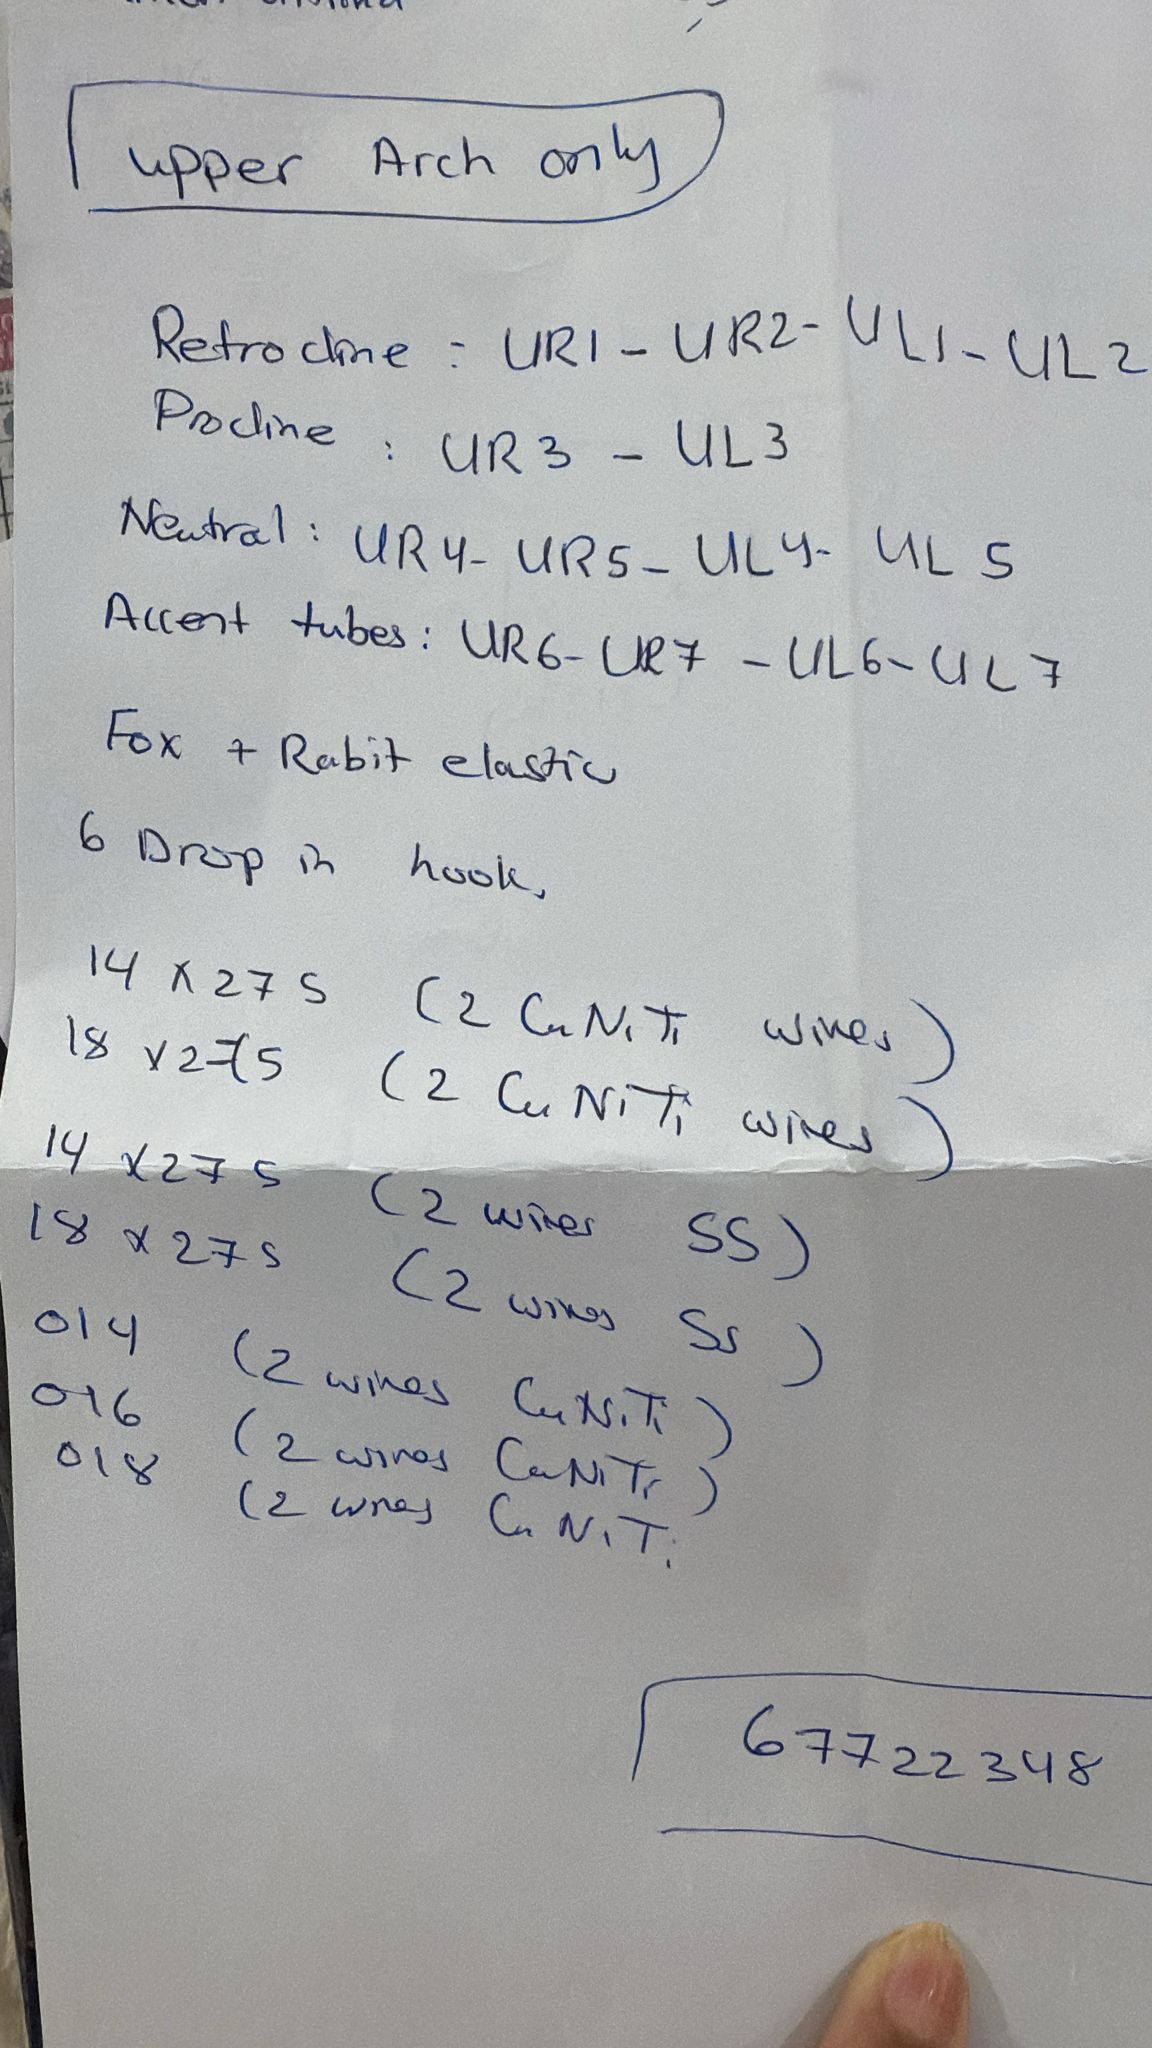 upper Arch only
Retrocline : UR1 - UR2 - UL1 - UL2
Procline : UR3 - UL3
Neutral : UR4 - UR5 - UL4 - UL5
Accent tubes : UR6 - UR7 - UL6 - UL7
Fox + Rabit elastic
6 Drop in hook,
14 x 275 (2 CuNiTi wires)
18 x 275 (2 CuNiTi wires)
14 x 275 (2 wires SS)
18 x 275 (2 wires SS)
014 (2 wires CuNiTi)
016 (2 wires CuNiTi)
018 (2 wires CuNiTi
67722348